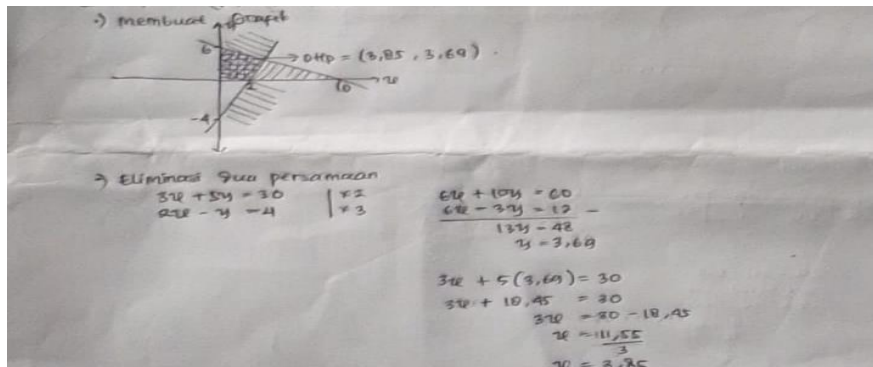 →) Membuat grafik
6
→ DHP = (3,85 , 3,69) .
2
10
x
-4
→ Eliminasi dua persamaan
3x + 5y = 30 | x2
2x - y = 4 | x3
6x + 10y = 60
6x - 3y = 12 -
13y = 48
y = 3,69
3x + 5(3,69) = 30
3x + 18,45 = 30
3x = 30 - 18,45
x = 11,55
3
x = 3,85